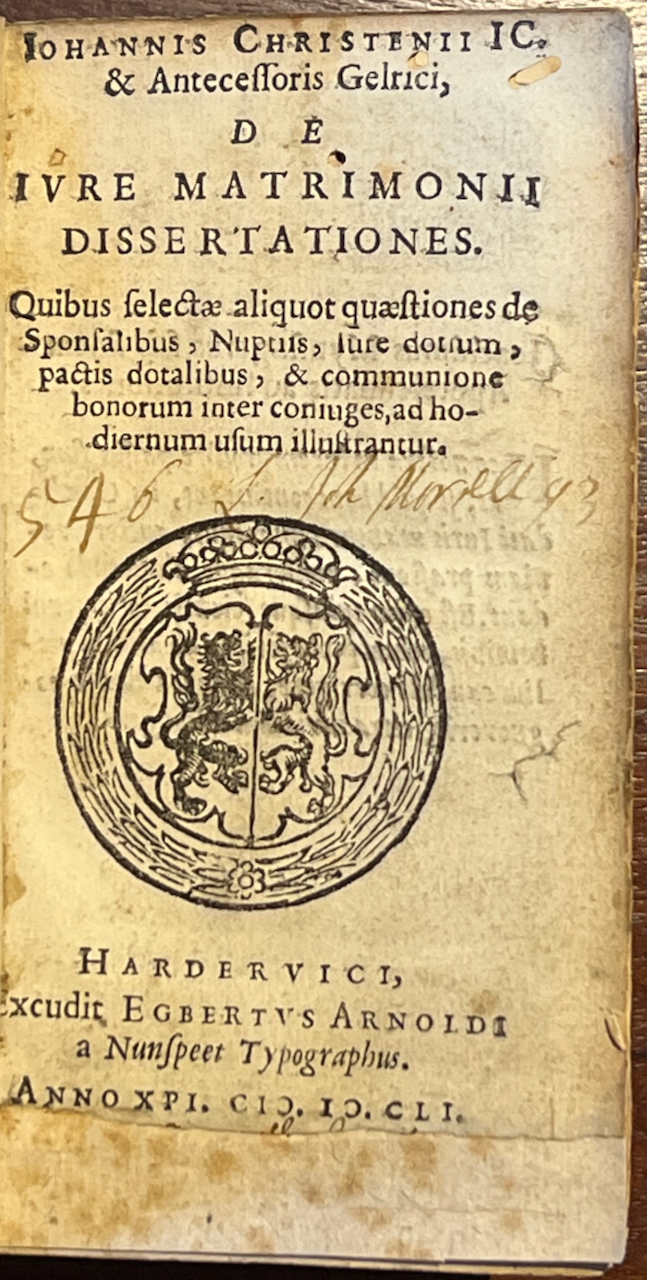 IOHANNIS CHRISTENII IC.
& Anteceſſoris Gelrici,
DE
IVRE MATRIMONII
DISSERTATIONES.
Quibus ſelectæ aliquot quæſtiones de
Sponſalibus, Nuptiis, iure dotium,
pactis dotalibus, & communione
bonorum inter coniuges, ad ho-
diernum uſum illuſtrantur.
546 Joh Morrell
HARDERVICI,
Excudit EGBERTVS ARNOLDI
a Nunſpeet Typographus.
ANNO XPI. CIↃ. IↃ. CLI.